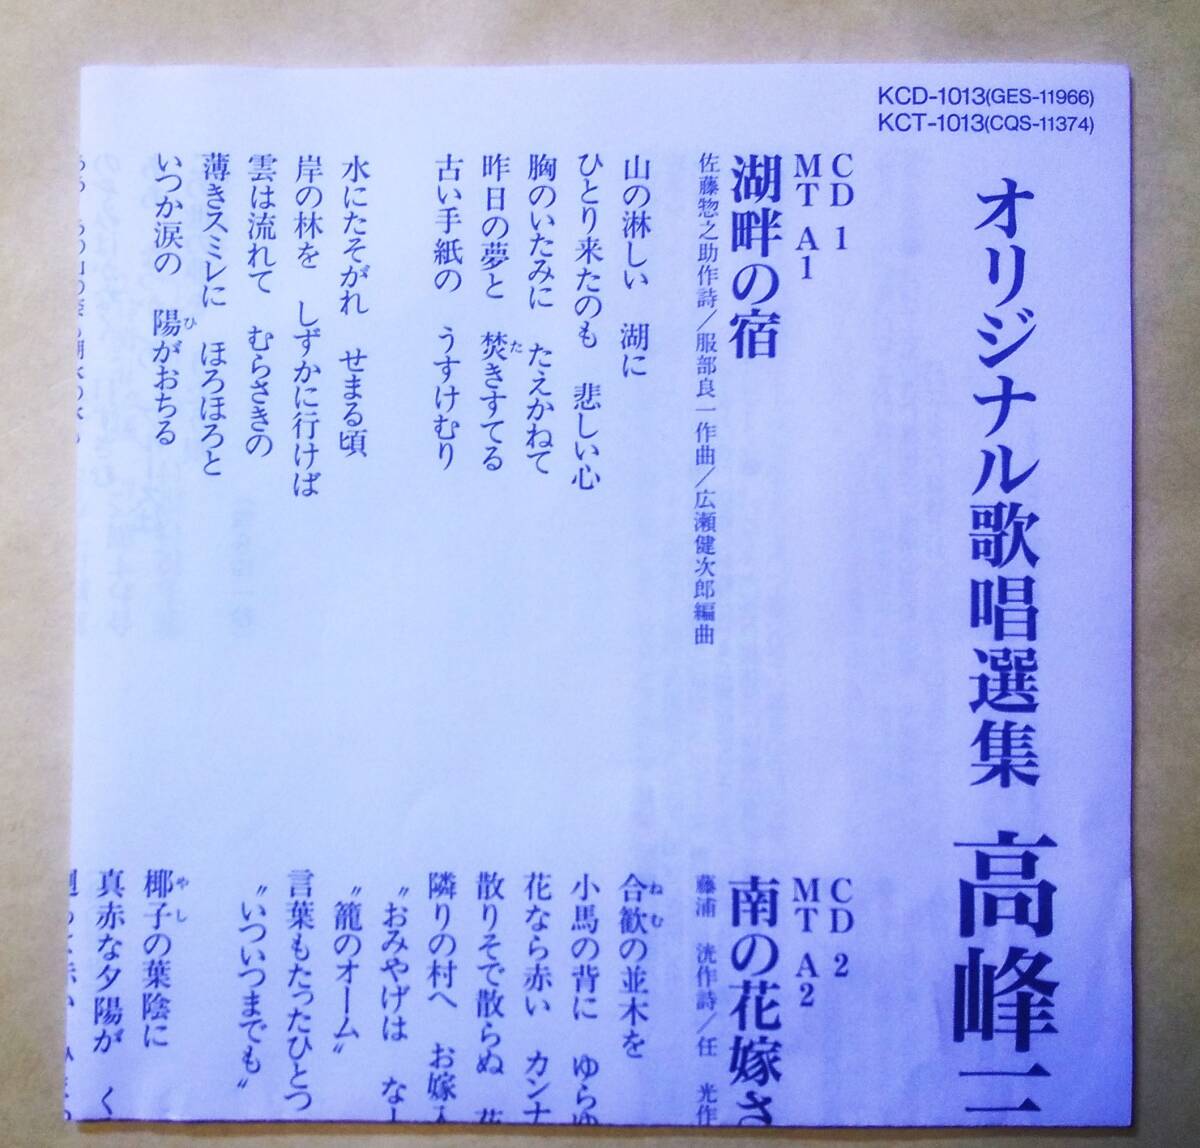 KCD-1013(GES-11966)
KCT-1013(CQS-11374)
オリジナル歌唱選集 高峰三
CD 1
MT A1
湖畔の宿
佐藤惣之助作詩/服部良一作曲/広瀬健次郎編曲
山の淋しい 湖に
ひとり来たのも 悲しい心
胸のいたみに たえかねて
昨日の夢と 焚きすてる
古い手紙の うすけむり
水にたそがれ せまる頃
岸の林を しずかに行けば
雲は流れて むらさきの
薄きスミレに ほろほろと
いつか涙の 陽がおちる
CD 2
MT A2
南の花嫁さ
藤浦 洸作詩/任 光作
合歓の並木を
小馬の背に ゆらゆ
花なら赤い カンナ
散りそで散らぬ 花
隣りの村へ お嫁入
〝おみやげは な
〝籠のオーム〟
言葉もたったひとつ
〝いついつまでも〟
椰子の葉陰に
真赤な夕陽が く